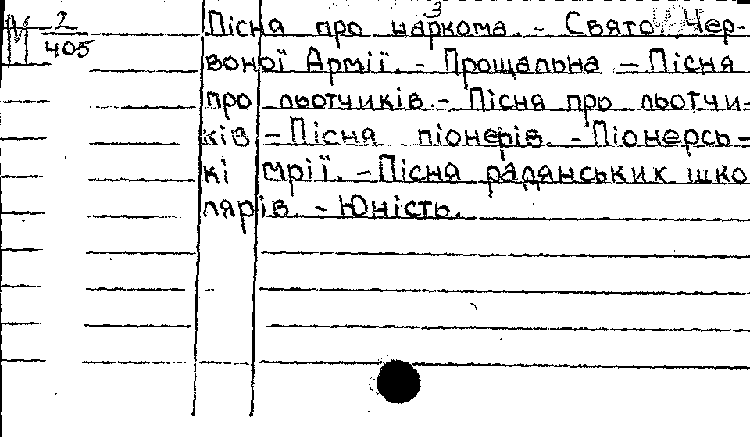 М 2/405
3
Пісня про наркома. - Свято Чер-
воної Армії. - Прощальна - Пісня
про льотчиків - Пісня про льотчи-
ків - Пісня піонерів. - Піонерсь-
кі мрії. - Пісня радянських шко
лярів. - Юність.